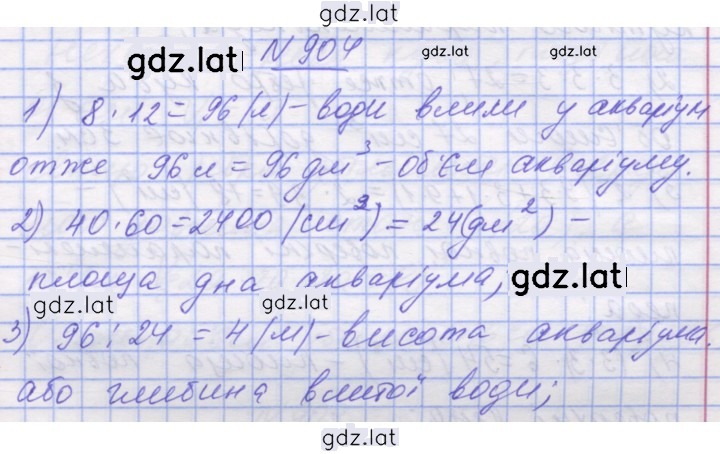 gdz.lat
gdz.lat N 904 gdz.lat gdz.lat
1) 8 · 12 = 96 (л) – води влили у акваріум
отже 96 л = 96 дм³ – об'єм акваріуму.
2) 40 · 60 = 2400 (см²) = 24 (дм²) –
площа дна акваріума,
gdz.lat gdz.lat gdz.lat
3) 96 : 24 = 4 (м) – висота акваріума.
або глибина влитої води;
gdz.lat